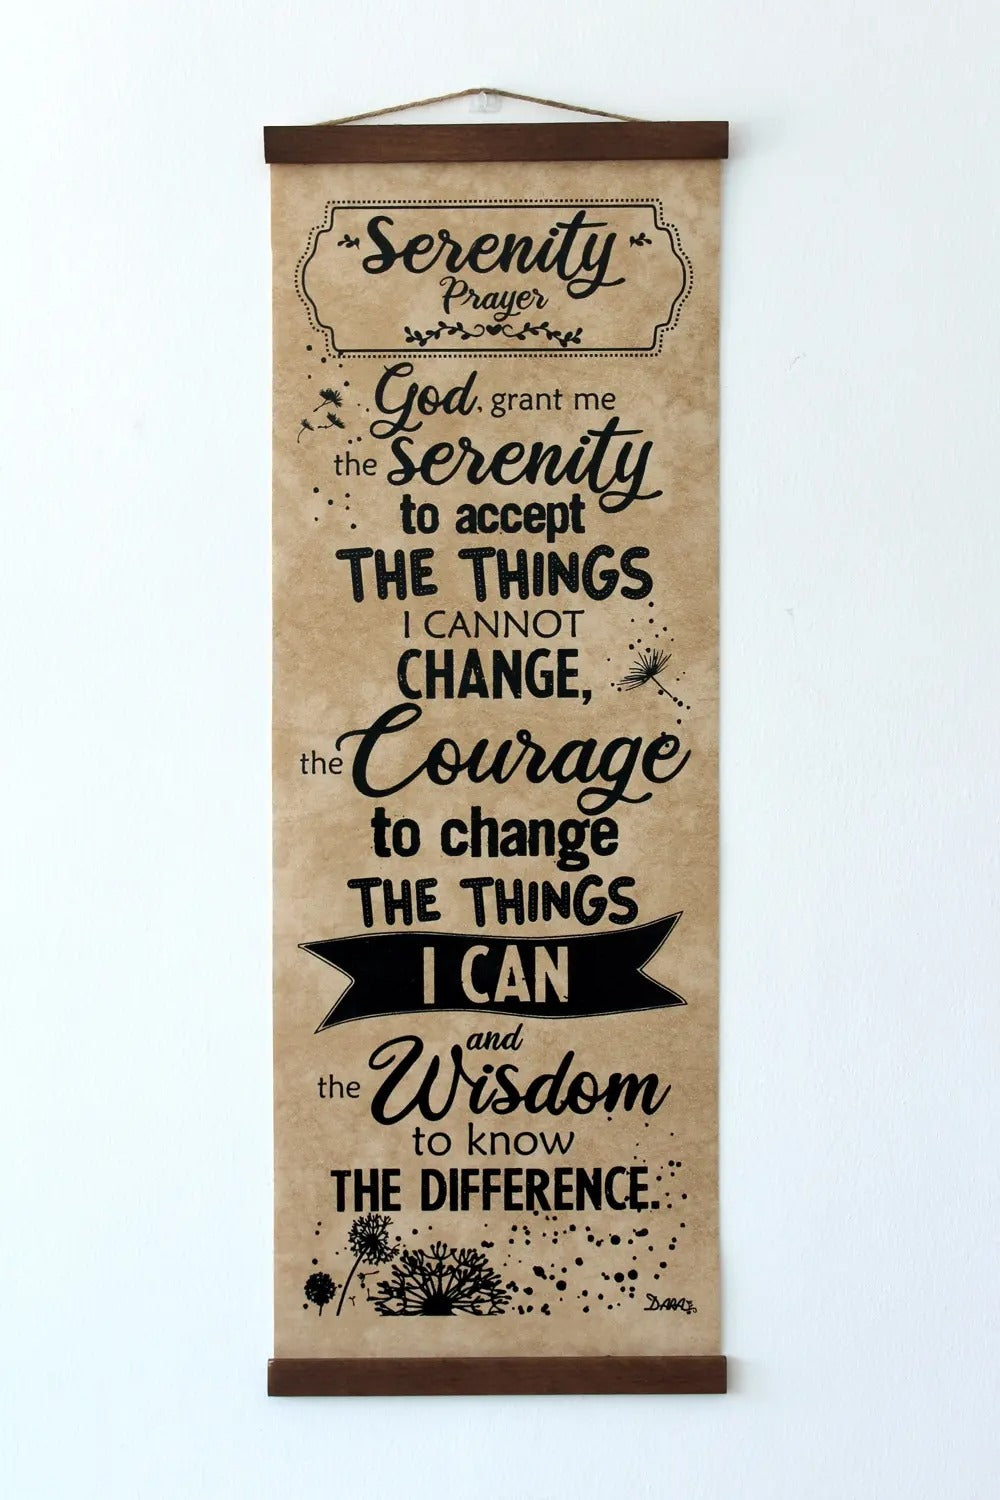 Serenity
Prayer
God, grant me
the serenity
to accept
THE THINGS
I CANNOT
CHANGE,
the Courage
to change
THE THINGS
I CAN
and
the Wisdom
to know
THE DIFFERENCE.